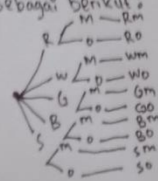 sebagai berikut.
M Rm
R
O Ro
M Wm
W
O Wo
G M Gm
O Go
B M Bm
O Bo
S
M Sm
O So